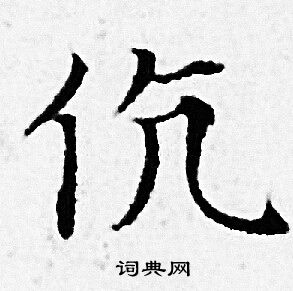 伉
词典网